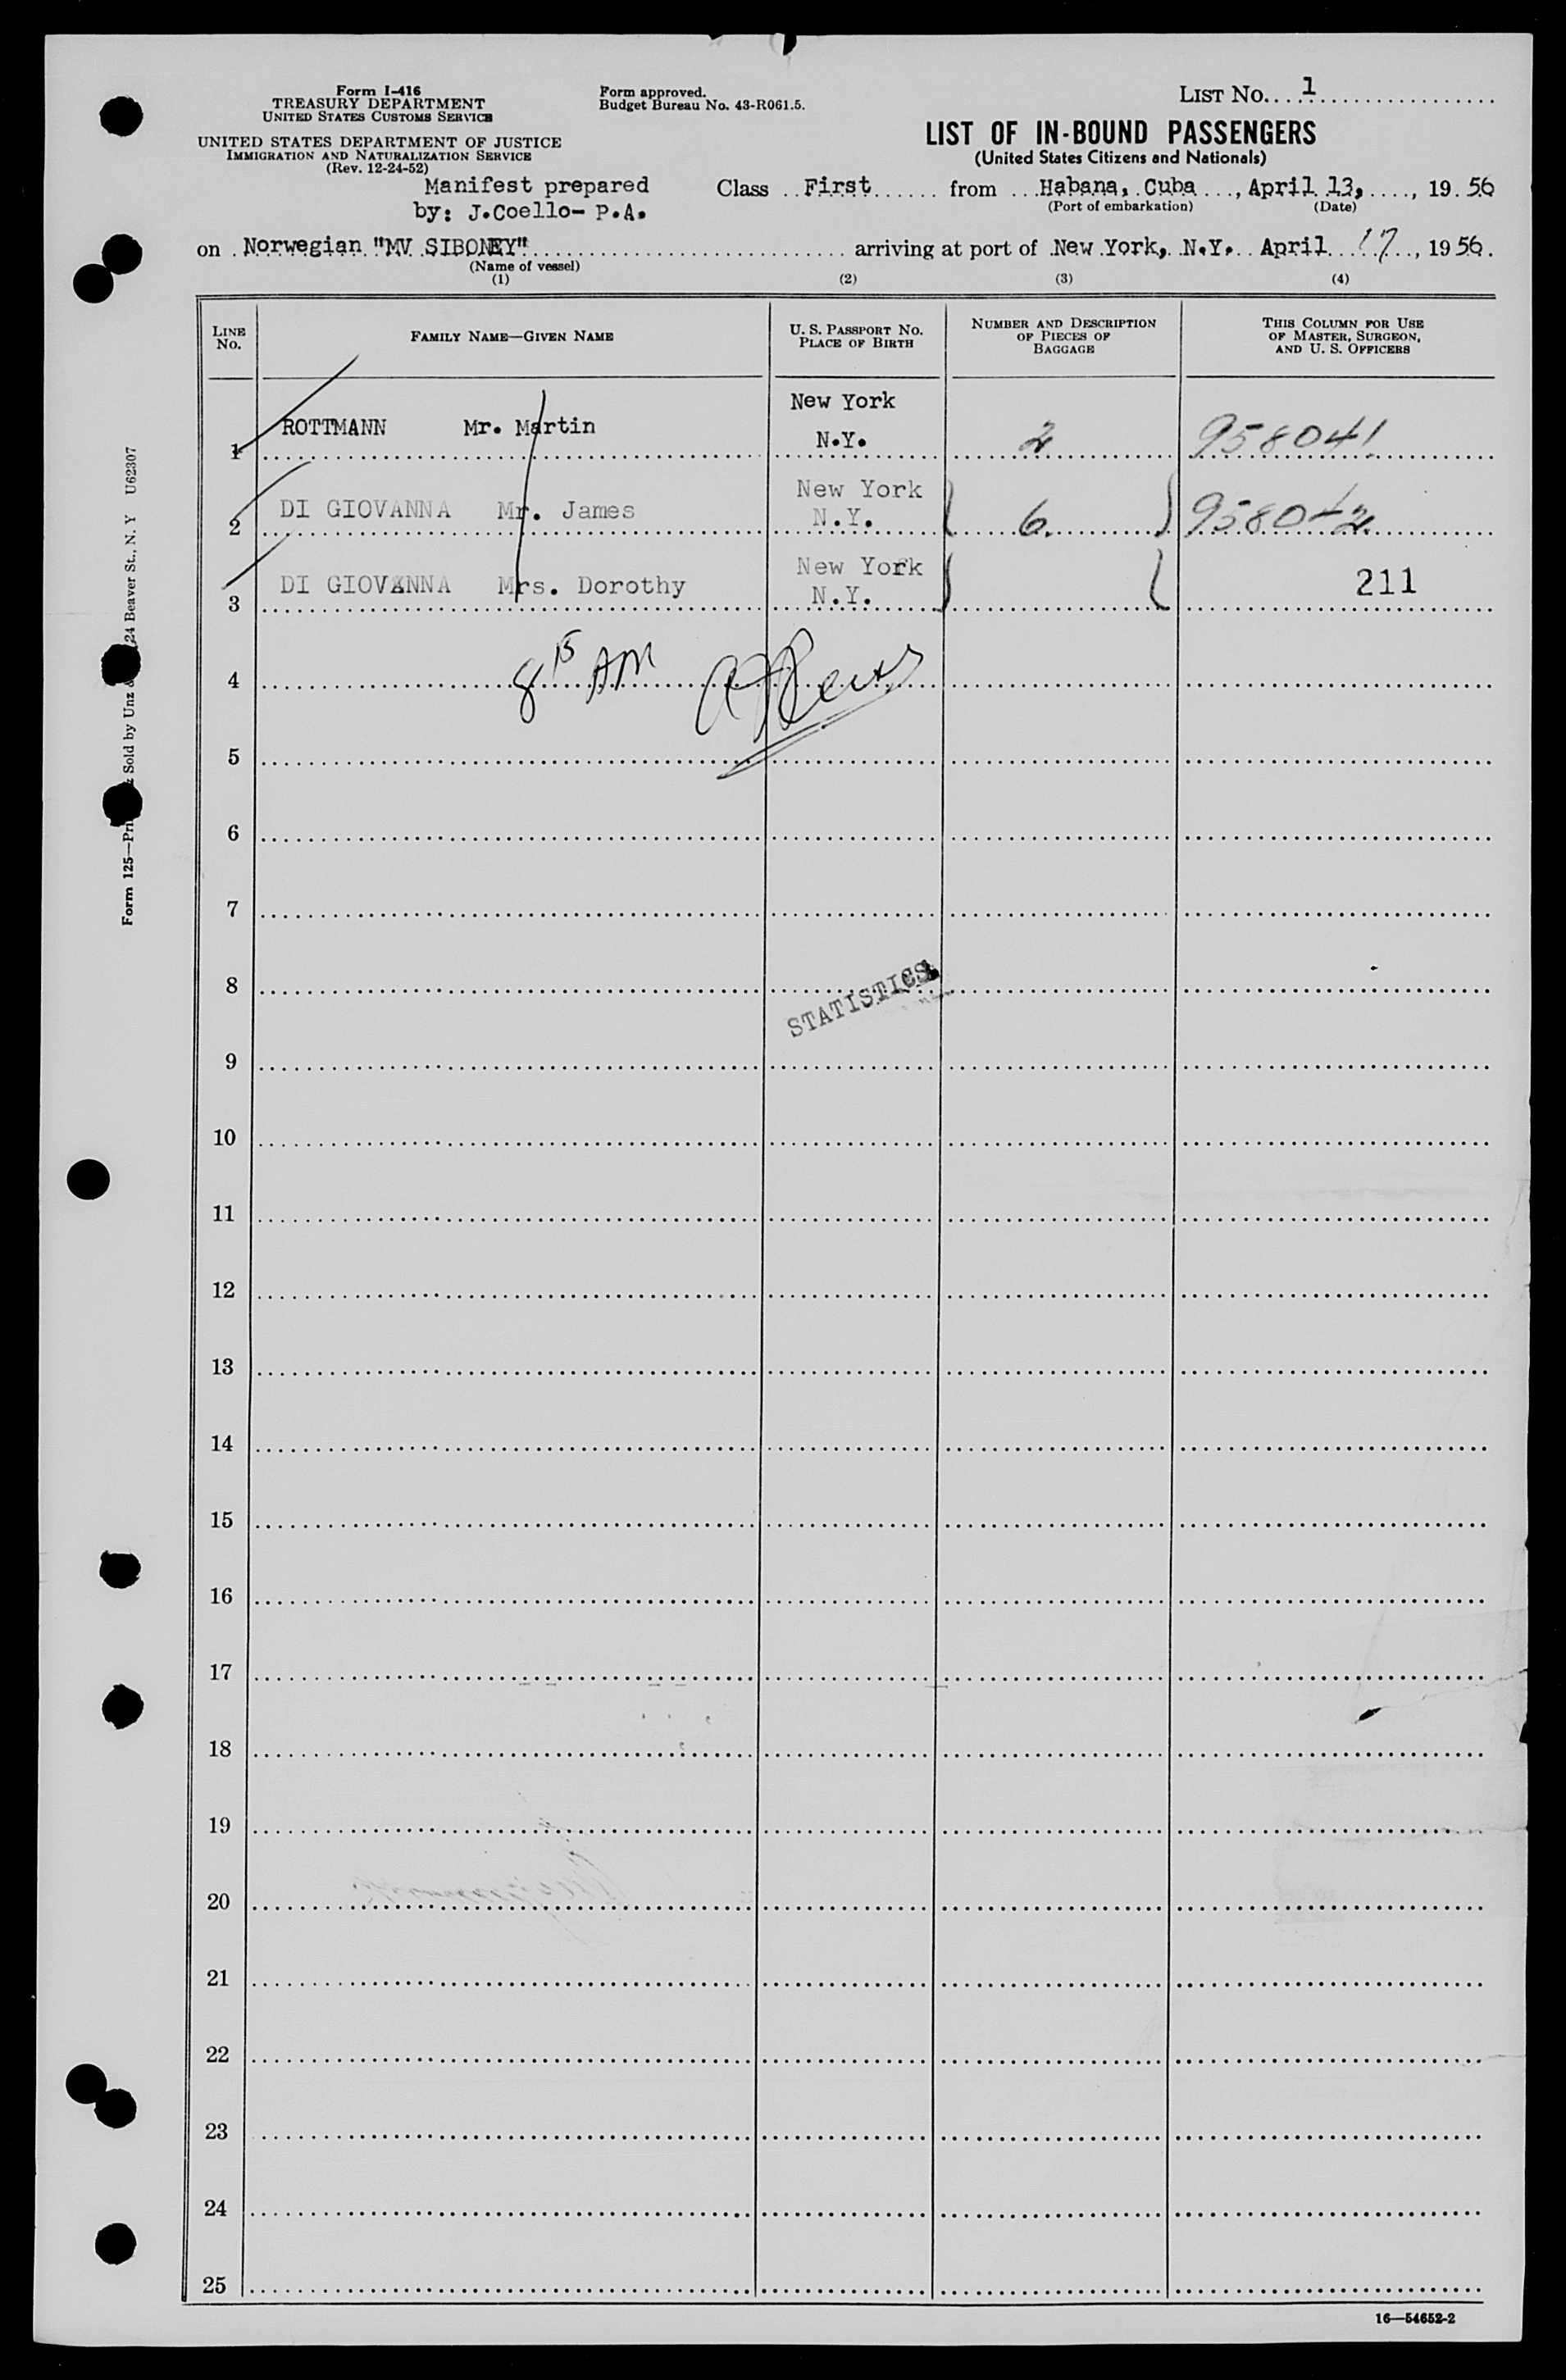 Form I-416
TREASURY DEPARTMENT
UNITED STATES CUSTOMS SERVICE
UNITED STATES DEPARTMENT OF JUSTICE
IMMIGRATION AND NATURALIZATION SERVICE
(Rev. 12-24-52)
Form approved.
Budget Bureau No. 43-R061.5.
LIST No. 1
LIST OF IN-BOUND PASSENGERS
(United States Citizens and Nationals)
Manifest prepared
by: J.Coello- P.A.
Class First from Habana, Cuba, April 13, 1956
(Port of embarkation) (Date)
on Norwegian "MV SIBONEY" arriving at port of New York, N.Y. April 17, 1956.
(Name of vessel)
(1) (2) (3) (4)
LINE No. FAMILY NAME—GIVEN NAME U. S. PASSPORT No. PLACE OF BIRTH NUMBER AND DESCRIPTION OF PIECES OF BAGGAGE THIS COLUMN FOR USE OF MASTER, SURGEON, AND U. S. OFFICERS
1 ROTTMANN Mr. Martin New York N.Y. 2 958041
2 DI GIOVANNA Mr. James New York N.Y. 6 958042
3 DI GIOVANNA Mrs. Dorothy New York N.Y. 211
4 8 15 AM
5
6
7
8
STATISTICS
9
10
11
12
13
14
15
16
17
18
19
20
21
22
23
24
25
16—54652-2
Form 125—Pri Sold by Unz & 24 Beaver St., N. Y U62307